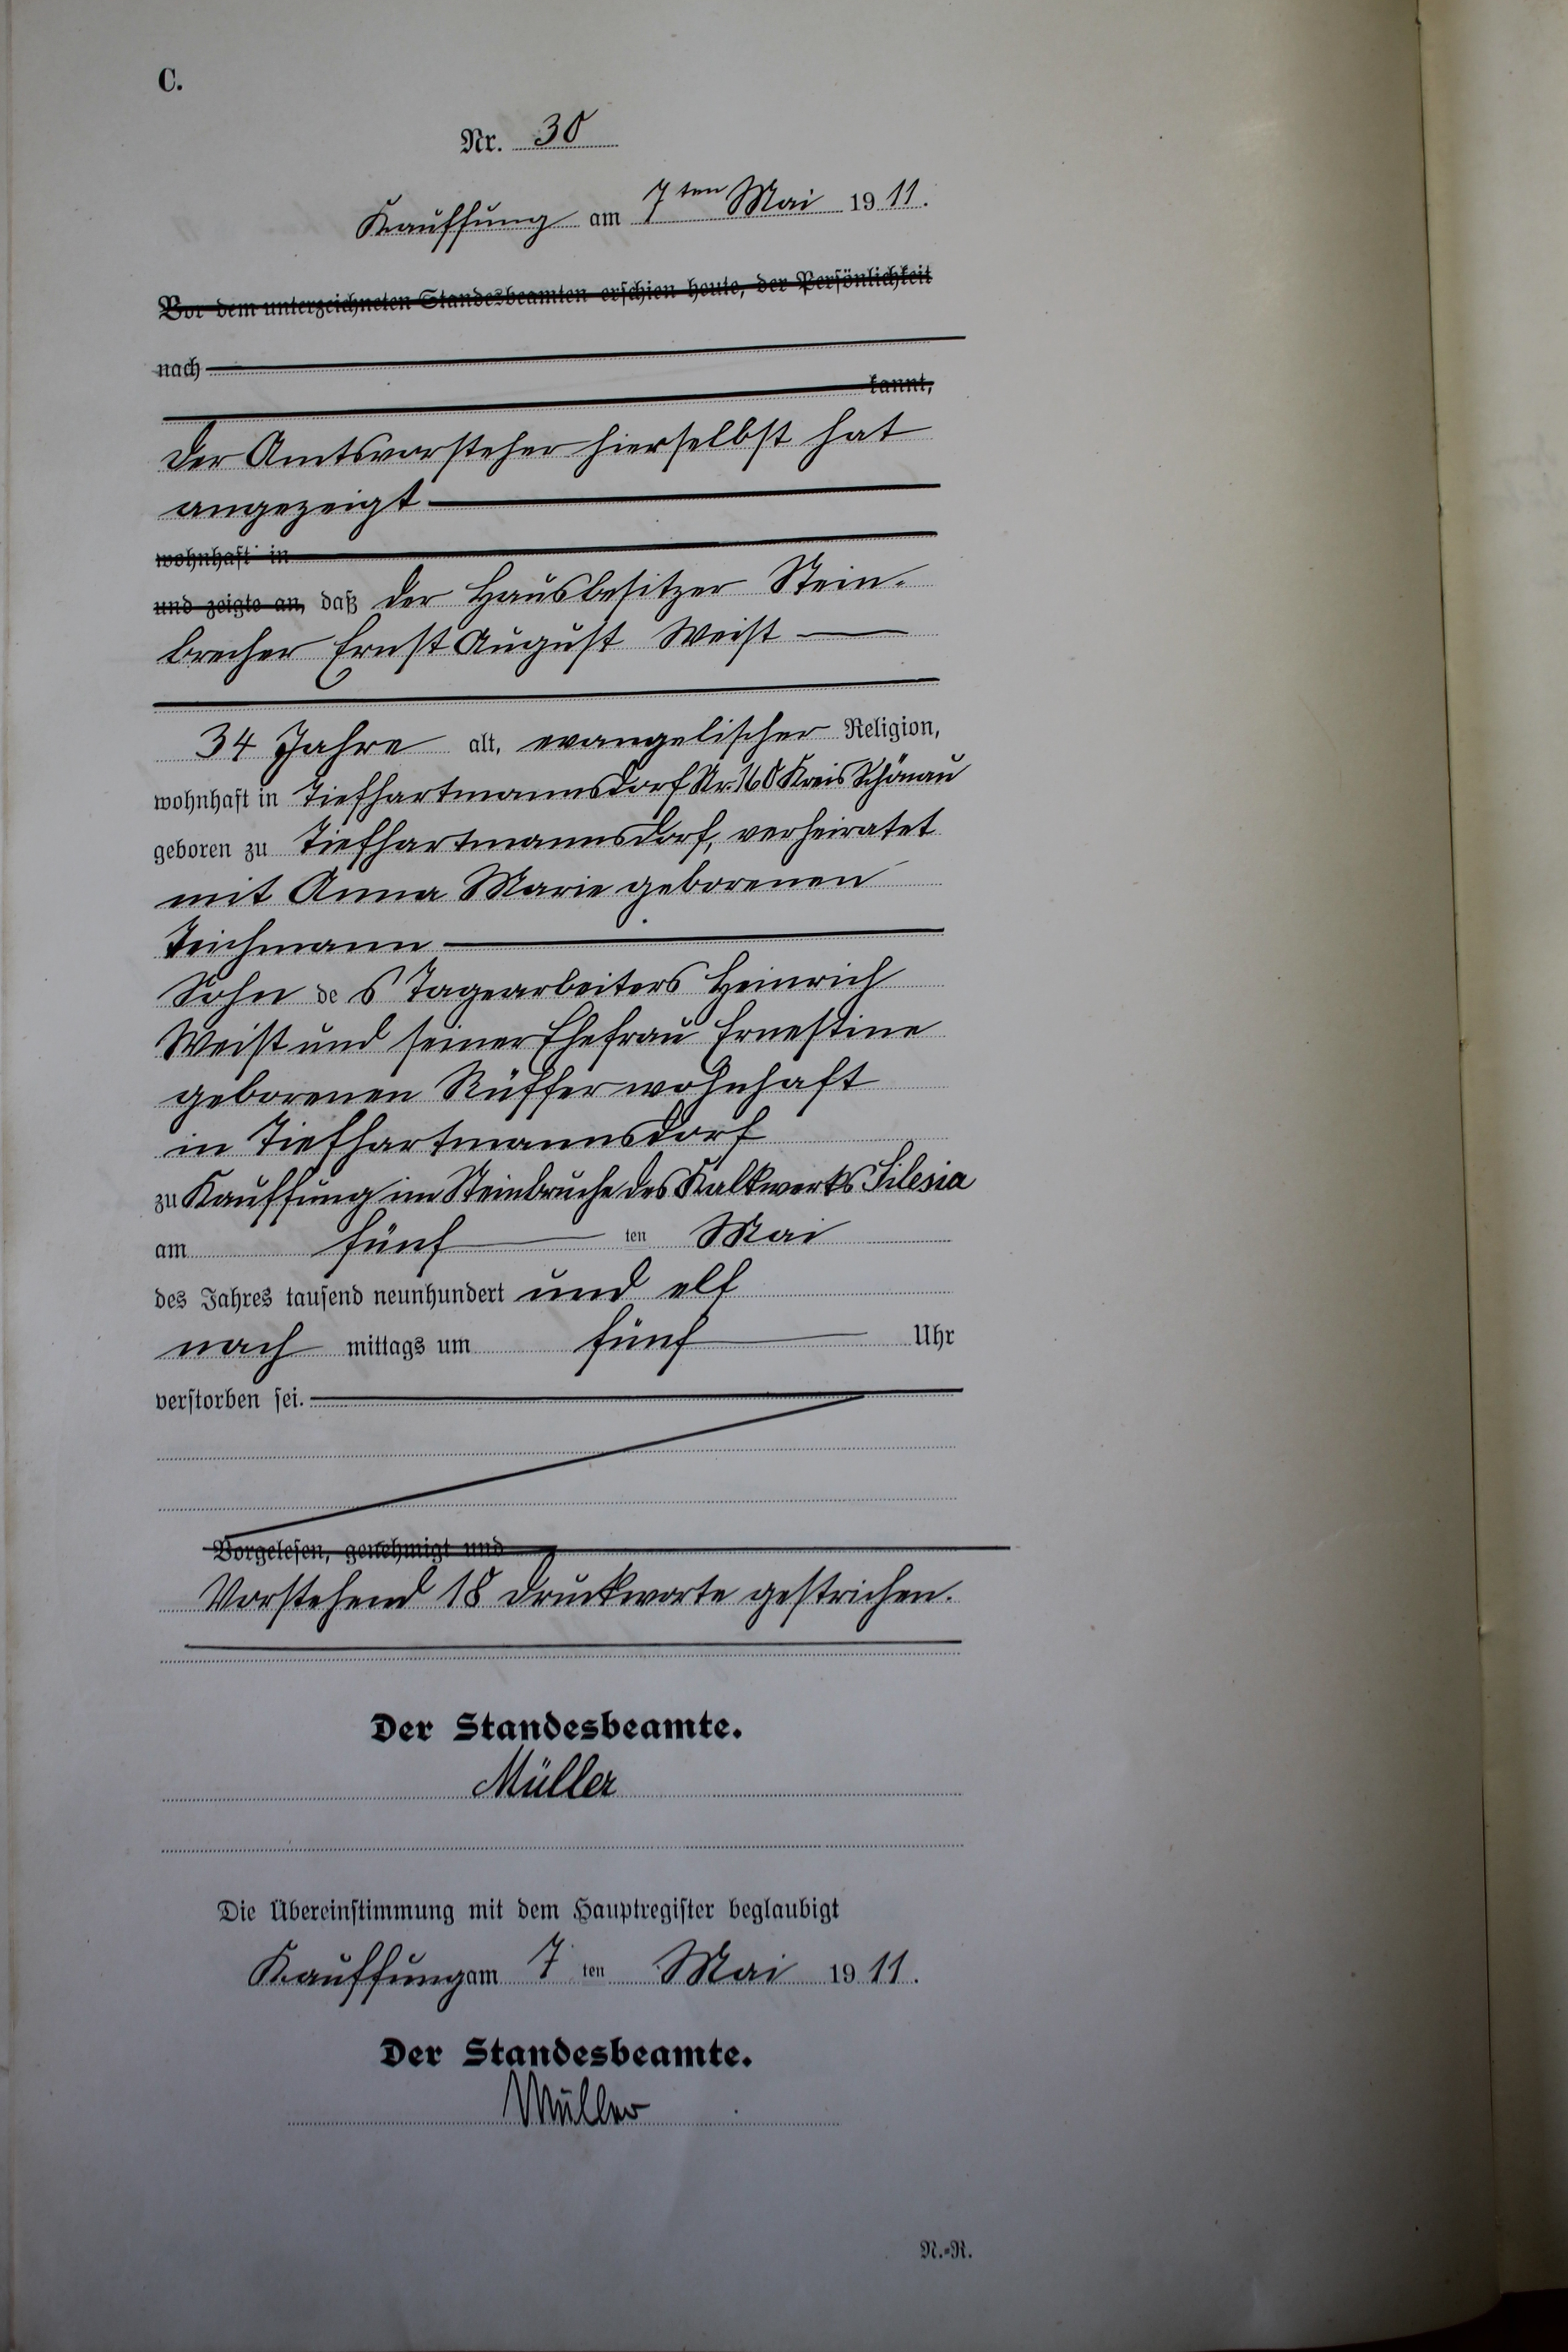 C.
Nr. 30
Kauffung am 7ten Mai 1911.
Vor dem unterzeichneten Standesbeamten erschien heute, der Persönlichkeit
nach
kannt,
Der Amtsvorsteher hierselbst hat
angezeigt
wohnhaft in
und zeigte an, daß der Hausbesitzer Stein-
brecher Ernst August Weist
34 Jahre alt, evangelischer Religion,
wohnhaft in Tiefhartmannsdorf Nr. 160 Kreis Schönau
geboren zu Tiefhartmannsdorf, verheiratet
mit Anna Marie geborenen
Teichmann
Sohn des Tagearbeiters Heinrich
Weist und seiner Ehefrau Ernestine
geborenen Rüffer wohnhaft
in Tiefhartmannsdorf
zu Kauffung im Steinbruche des Kalkwerks Silesia
am fünf ten Mai
des Jahres tausend neunhundert und elf
nach mittags um fünf Uhr
verstorben sei.
Vorgelesen, genehmigt und
Vorstehend 18 Druckworte gestrichen.
Der Standesbeamte.
Müller
Die Übereinstimmung mit dem Hauptregister beglaubigt
Kauffung am 7 ten Mai 1911.
Der Standesbeamte.
Müller
N.-R.